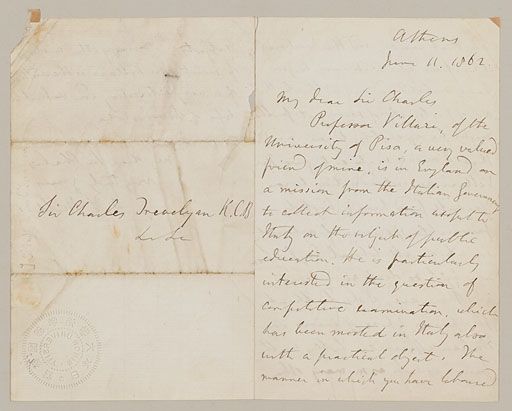 Sir Charles Trevelyan K.C.B
&c &c
Athens
June 11. 1862.
My dear Sir Charles
Professor Villari, of the
University of Pisa, a very valued
friend of mine, is in England on
a mission from the Italian Government
to collect information useful to
Italy on the subject of public
education. He is particularly
interested in the question of
competitive examination, which
has been mooted in Italy also,
with a practical object. The
manner in which you have laboured